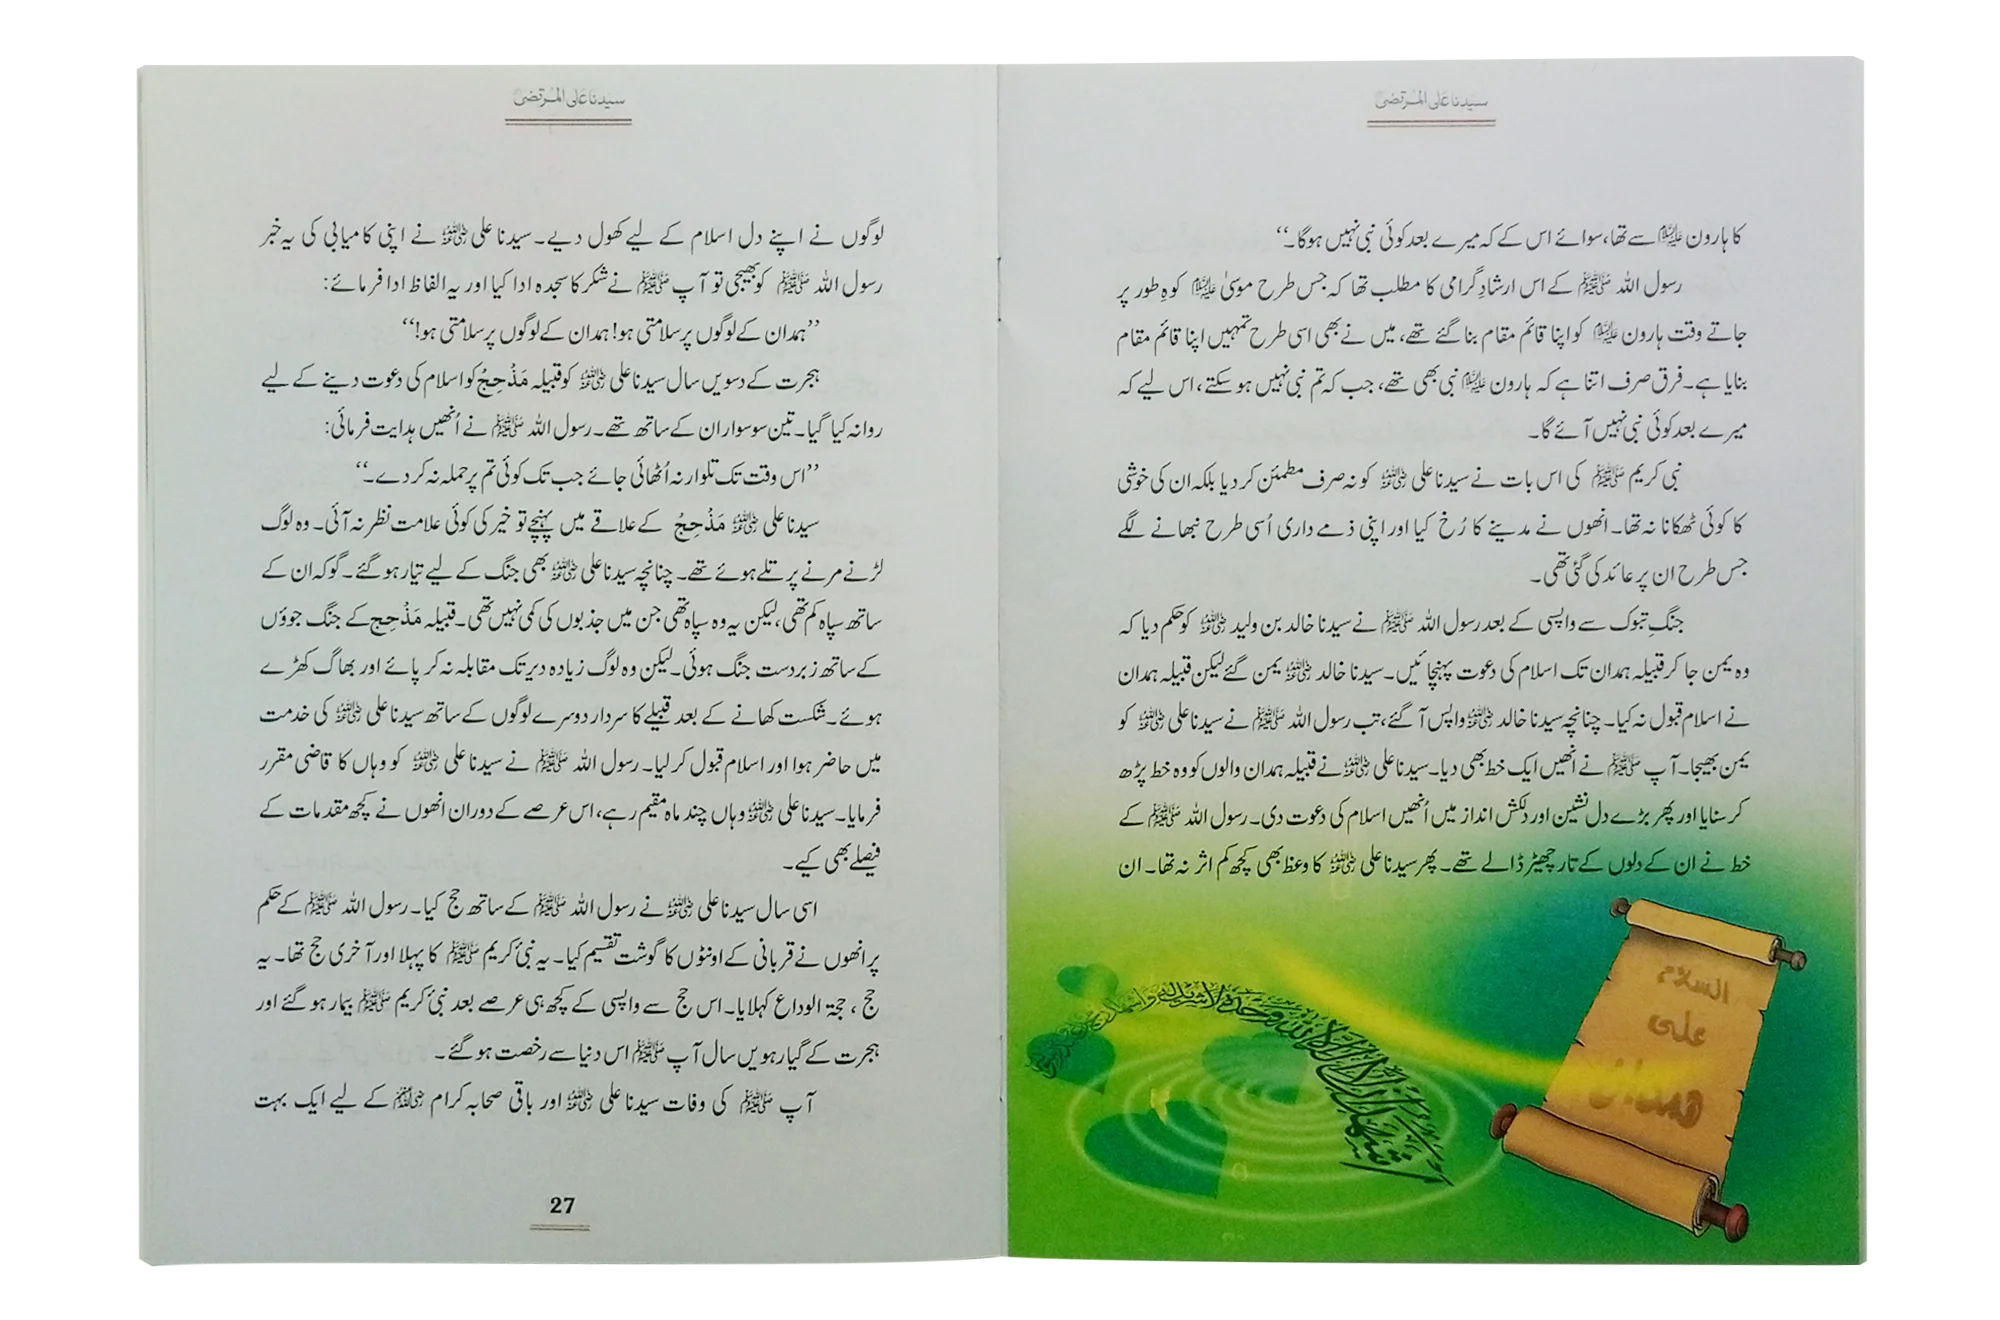 سیدنا علی المرتضی
کا ہارون علیہ السلام سے تھا، سوائے اس کے کہ میرے بعد کوئی نبی نہیں ہوگا۔‘‘
رسول اللہ ﷺ کے اس ارشادِ گرامی کا مطلب تھا کہ جس طرح موسیٰ علیہ السلام کوہِ طور پر
جاتے وقت ہارون علیہ السلام کو اپنا قائم مقام بنا گئے تھے، میں نے بھی اسی طرح تمہیں اپنا قائم مقام
بنایا ہے۔ فرق صرف اتنا ہے کہ ہارون علیہ السلام نبی بھی تھے، جب کہ تم نبی نہیں ہو سکتے، اس لیے کہ
میرے بعد کوئی نبی نہیں آئے گا۔
نبی کریم ﷺ کی اس بات نے سیدنا علی رضی اللہ عنہ کو نہ صرف مطمئن کر دیا بلکہ ان کی خوشی
کا کوئی ٹھکانا نہ تھا۔ انھوں نے مدینے کا رُخ کیا اور اپنی ذمے داری اُسی طرح نبھانے لگے
جس طرح ان پر عائد کی گئی تھی۔
جنگِ تبوک سے واپسی کے بعد رسول اللہ ﷺ نے سیدنا خالد بن ولید رضی اللہ عنہ کو حکم دیا کہ
وہ یمن جا کر قبیلہ ہمدان تک اسلام کی دعوت پہنچائیں۔ سیدنا خالد رضی اللہ عنہ یمن گئے لیکن قبیلہ ہمدان
نے اسلام قبول نہ کیا۔ چنانچہ سیدنا خالد رضی اللہ عنہ واپس آ گئے، تب رسول اللہ ﷺ نے سیدنا علی رضی اللہ عنہ کو
یمن بھیجا۔ آپ ﷺ نے انھیں ایک خط بھی دیا۔ سیدنا علی رضی اللہ عنہ نے قبیلہ ہمدان والوں کو وہ خط پڑھ
کر سنایا اور پھر بڑے دل نشین اور دلکش انداز میں اُنھیں اسلام کی دعوت دی۔ رسول اللہ ﷺ کے
خط نے ان کے دلوں کے تار چھیڑ ڈالے تھے۔ پھر سیدنا علی رضی اللہ عنہ کا وعظ بھی کچھ کم اثر نہ تھا۔ ان
سیدنا علی المرتضی
لوگوں نے اپنے دل اسلام کے لیے کھول دیے۔ سیدنا علی رضی اللہ عنہ نے اپنی کامیابی کی یہ خبر
رسول اللہ ﷺ کو بھیجی تو آپ ﷺ نے شکر کا سجدہ ادا کیا اور یہ الفاظ ادا فرمائے:
’’ہمدان کے لوگوں پر سلامتی ہو! ہمدان کے لوگوں پر سلامتی ہو!‘‘
ہجرت کے دسویں سال سیدنا علی رضی اللہ عنہ کو قبیلہ مَذْحِجُ کو اسلام کی دعوت دینے کے لیے
روانہ کیا گیا۔ تین سو سوار ان کے ساتھ تھے۔ رسول اللہ ﷺ نے اُنھیں ہدایت فرمائی:
’’اس وقت تک تلوار نہ اُٹھائی جائے جب تک کوئی تم پر حملہ نہ کر دے۔‘‘
سیدنا علی رضی اللہ عنہ مَذْحِجُ کے علاقے میں پہنچے تو خیر کی کوئی علامت نظر نہ آئی۔ وہ لوگ
لڑنے مرنے پر تلے ہوئے تھے۔ چنانچہ سیدنا علی رضی اللہ عنہ بھی جنگ کے لیے تیار ہو گئے۔ گو کہ ان کے
ساتھ سپاہ کم تھی، لیکن یہ وہ سپاہ تھی جن میں جذبوں کی کمی نہیں تھی۔ قبیلہ مَذْحِج کے جنگ جوؤں
کے ساتھ زبردست جنگ ہوئی۔ لیکن وہ لوگ زیادہ دیر تک مقابلہ نہ کر پائے اور بھاگ کھڑے
ہوئے۔ شکست کھانے کے بعد قبیلے کا سردار دوسرے لوگوں کے ساتھ سیدنا علی رضی اللہ عنہ کی خدمت
میں حاضر ہوا اور اسلام قبول کر لیا۔ رسول اللہ ﷺ نے سیدنا علی رضی اللہ عنہ کو وہاں کا قاضی مقرر
فرمایا۔ سیدنا علی رضی اللہ عنہ وہاں چند ماہ مقیم رہے، اس عرصے کے دوران انھوں نے کچھ مقدمات کے
فیصلے بھی کیے۔
اسی سال سیدنا علی رضی اللہ عنہ نے رسول اللہ ﷺ کے ساتھ حج کیا۔ رسول اللہ ﷺ کے حکم
پر انھوں نے قربانی کے اونٹوں کا گوشت تقسیم کیا۔ یہ نبیٔ کریم ﷺ کا پہلا اور آخری حج تھا۔ یہ
حج، حجۃ الوداع کہلایا۔ اس حج سے واپسی کے کچھ ہی عرصے بعد نبیٔ کریم ﷺ بیمار ہو گئے اور
ہجرت کے گیارہویں سال آپ ﷺ اس دنیا سے رخصت ہو گئے۔
آپ ﷺ کی وفات سیدنا علی رضی اللہ عنہ اور باقی صحابہ کرام رضی اللہ عنہم کے لیے ایک بہت
27